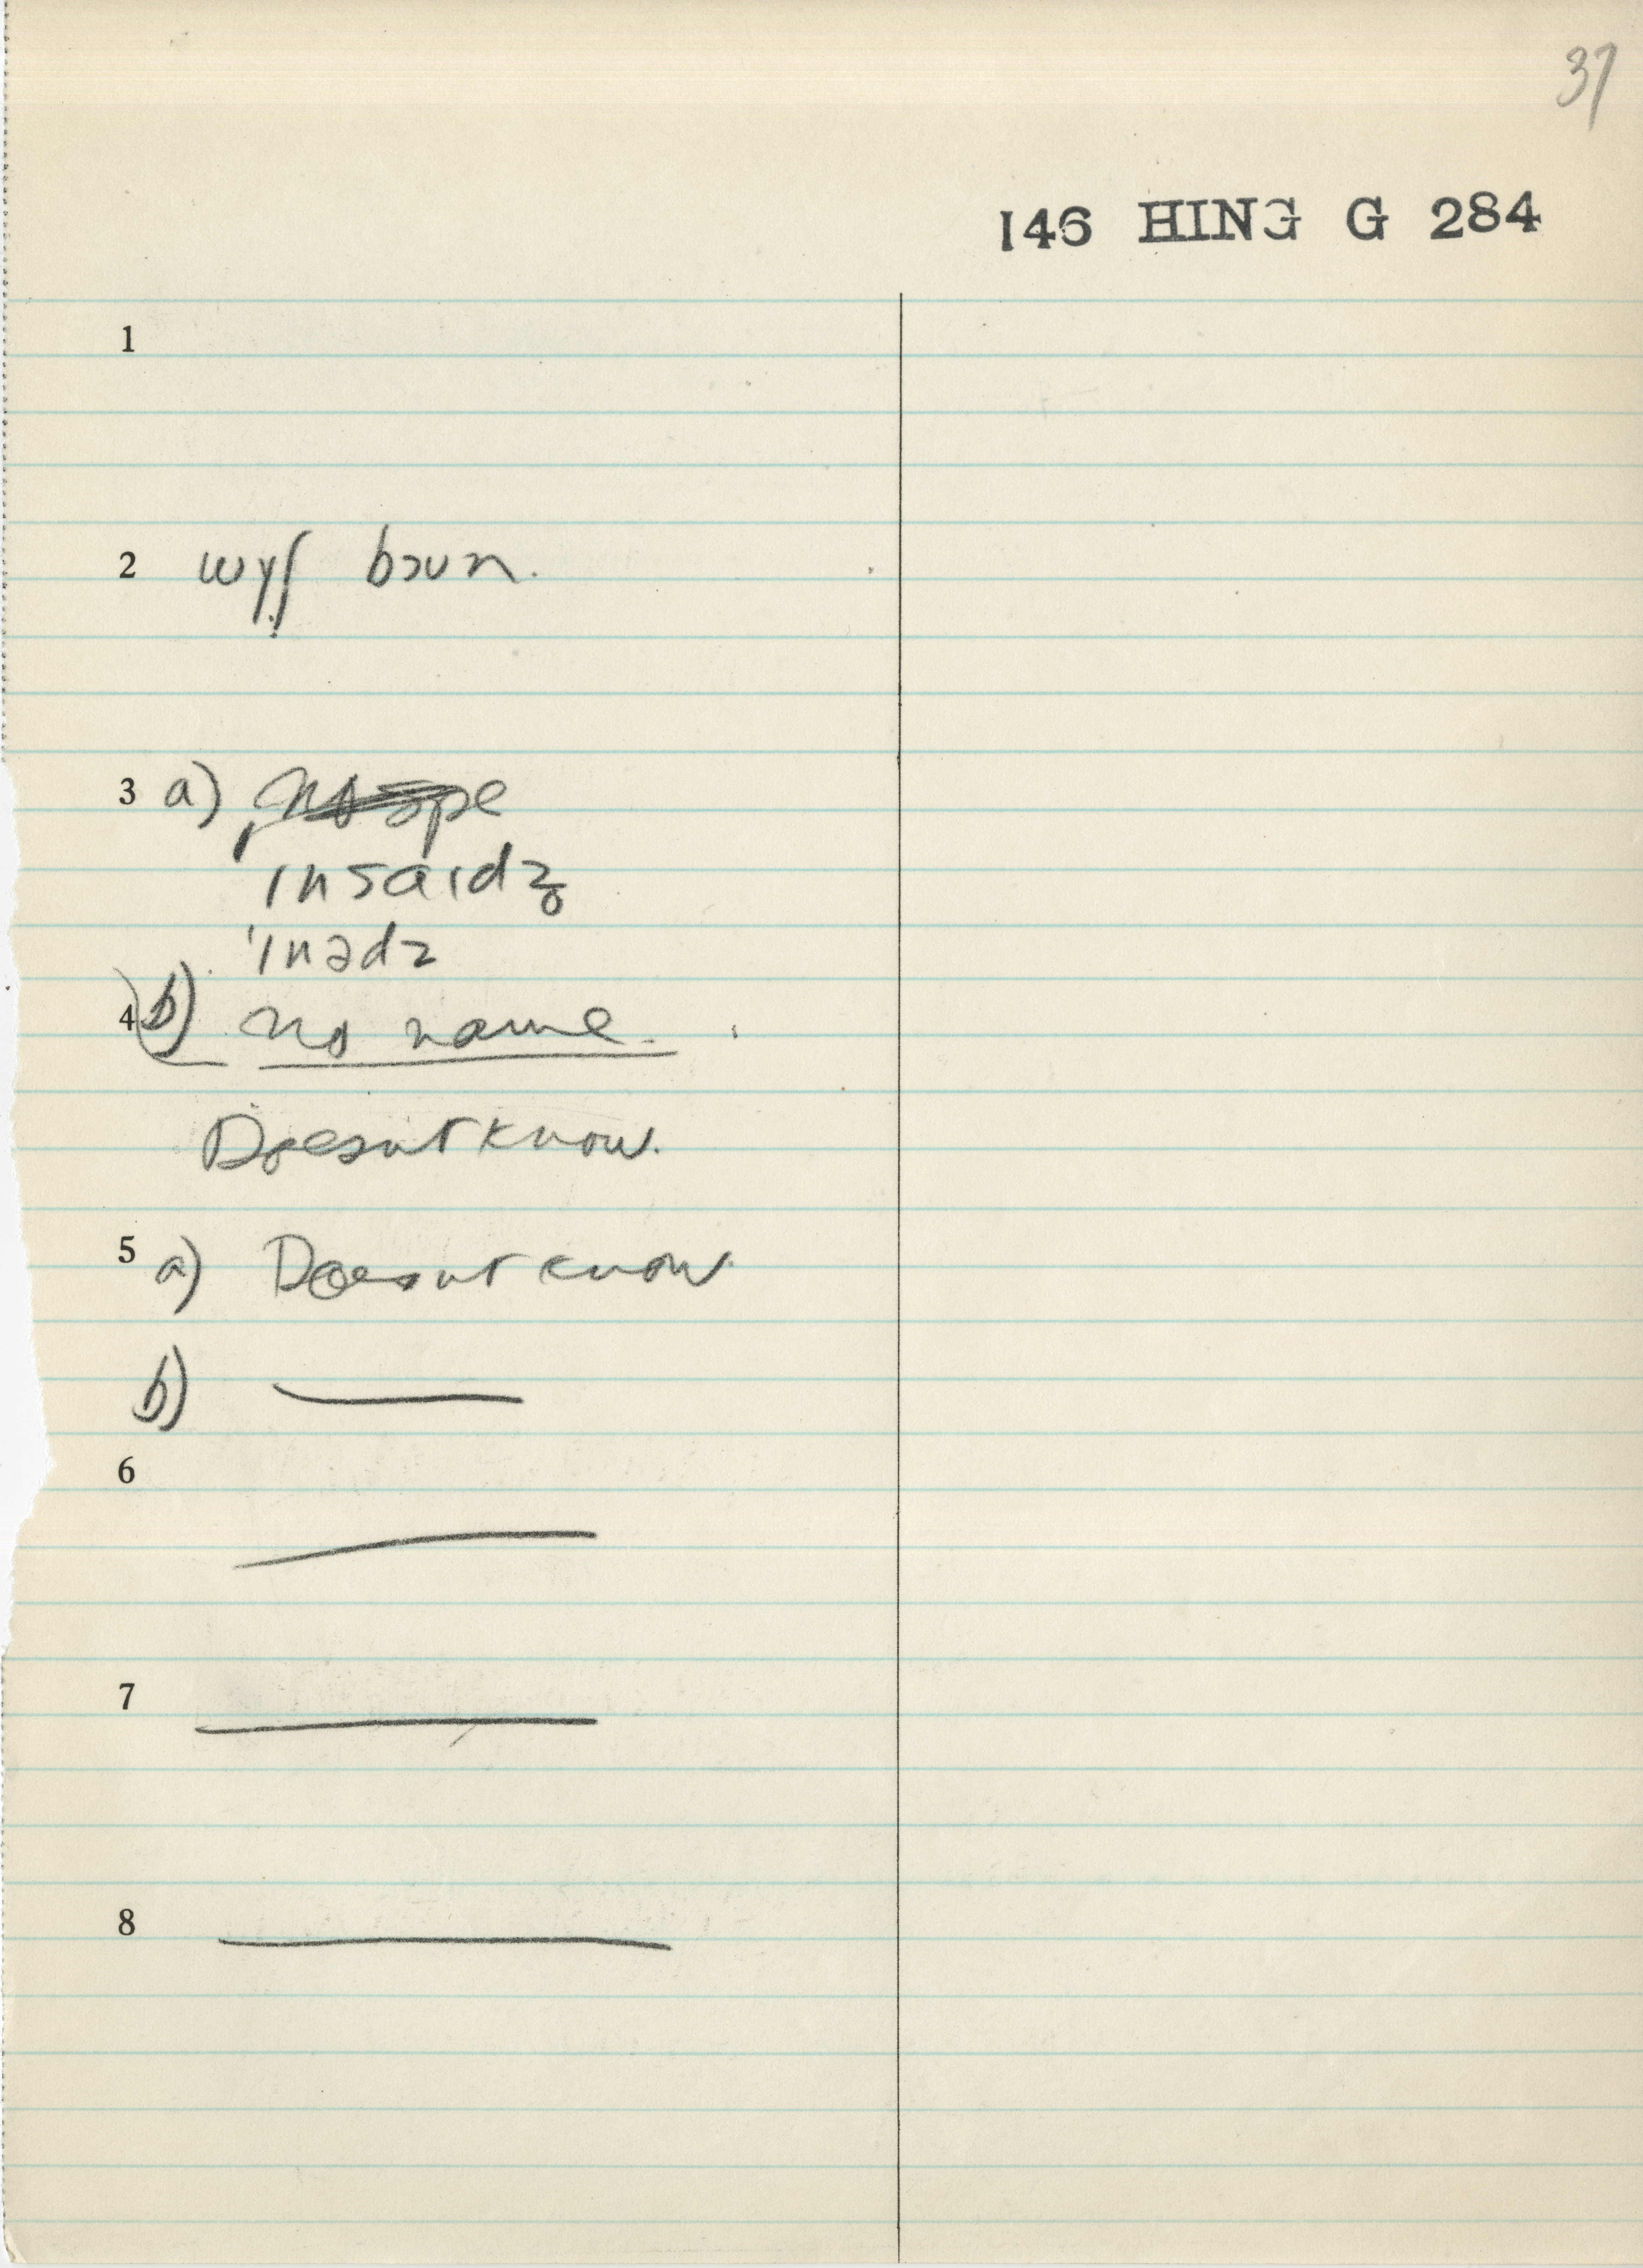 37
146 HING G 284
1
2 wɣʃ bɔun.
3 a)
ɪnsaɪdz̥
'ɪnədz
4 b) no name.
Doesnt know.
5 a) Doesnt know
b) —
6
—
7 —
8 —